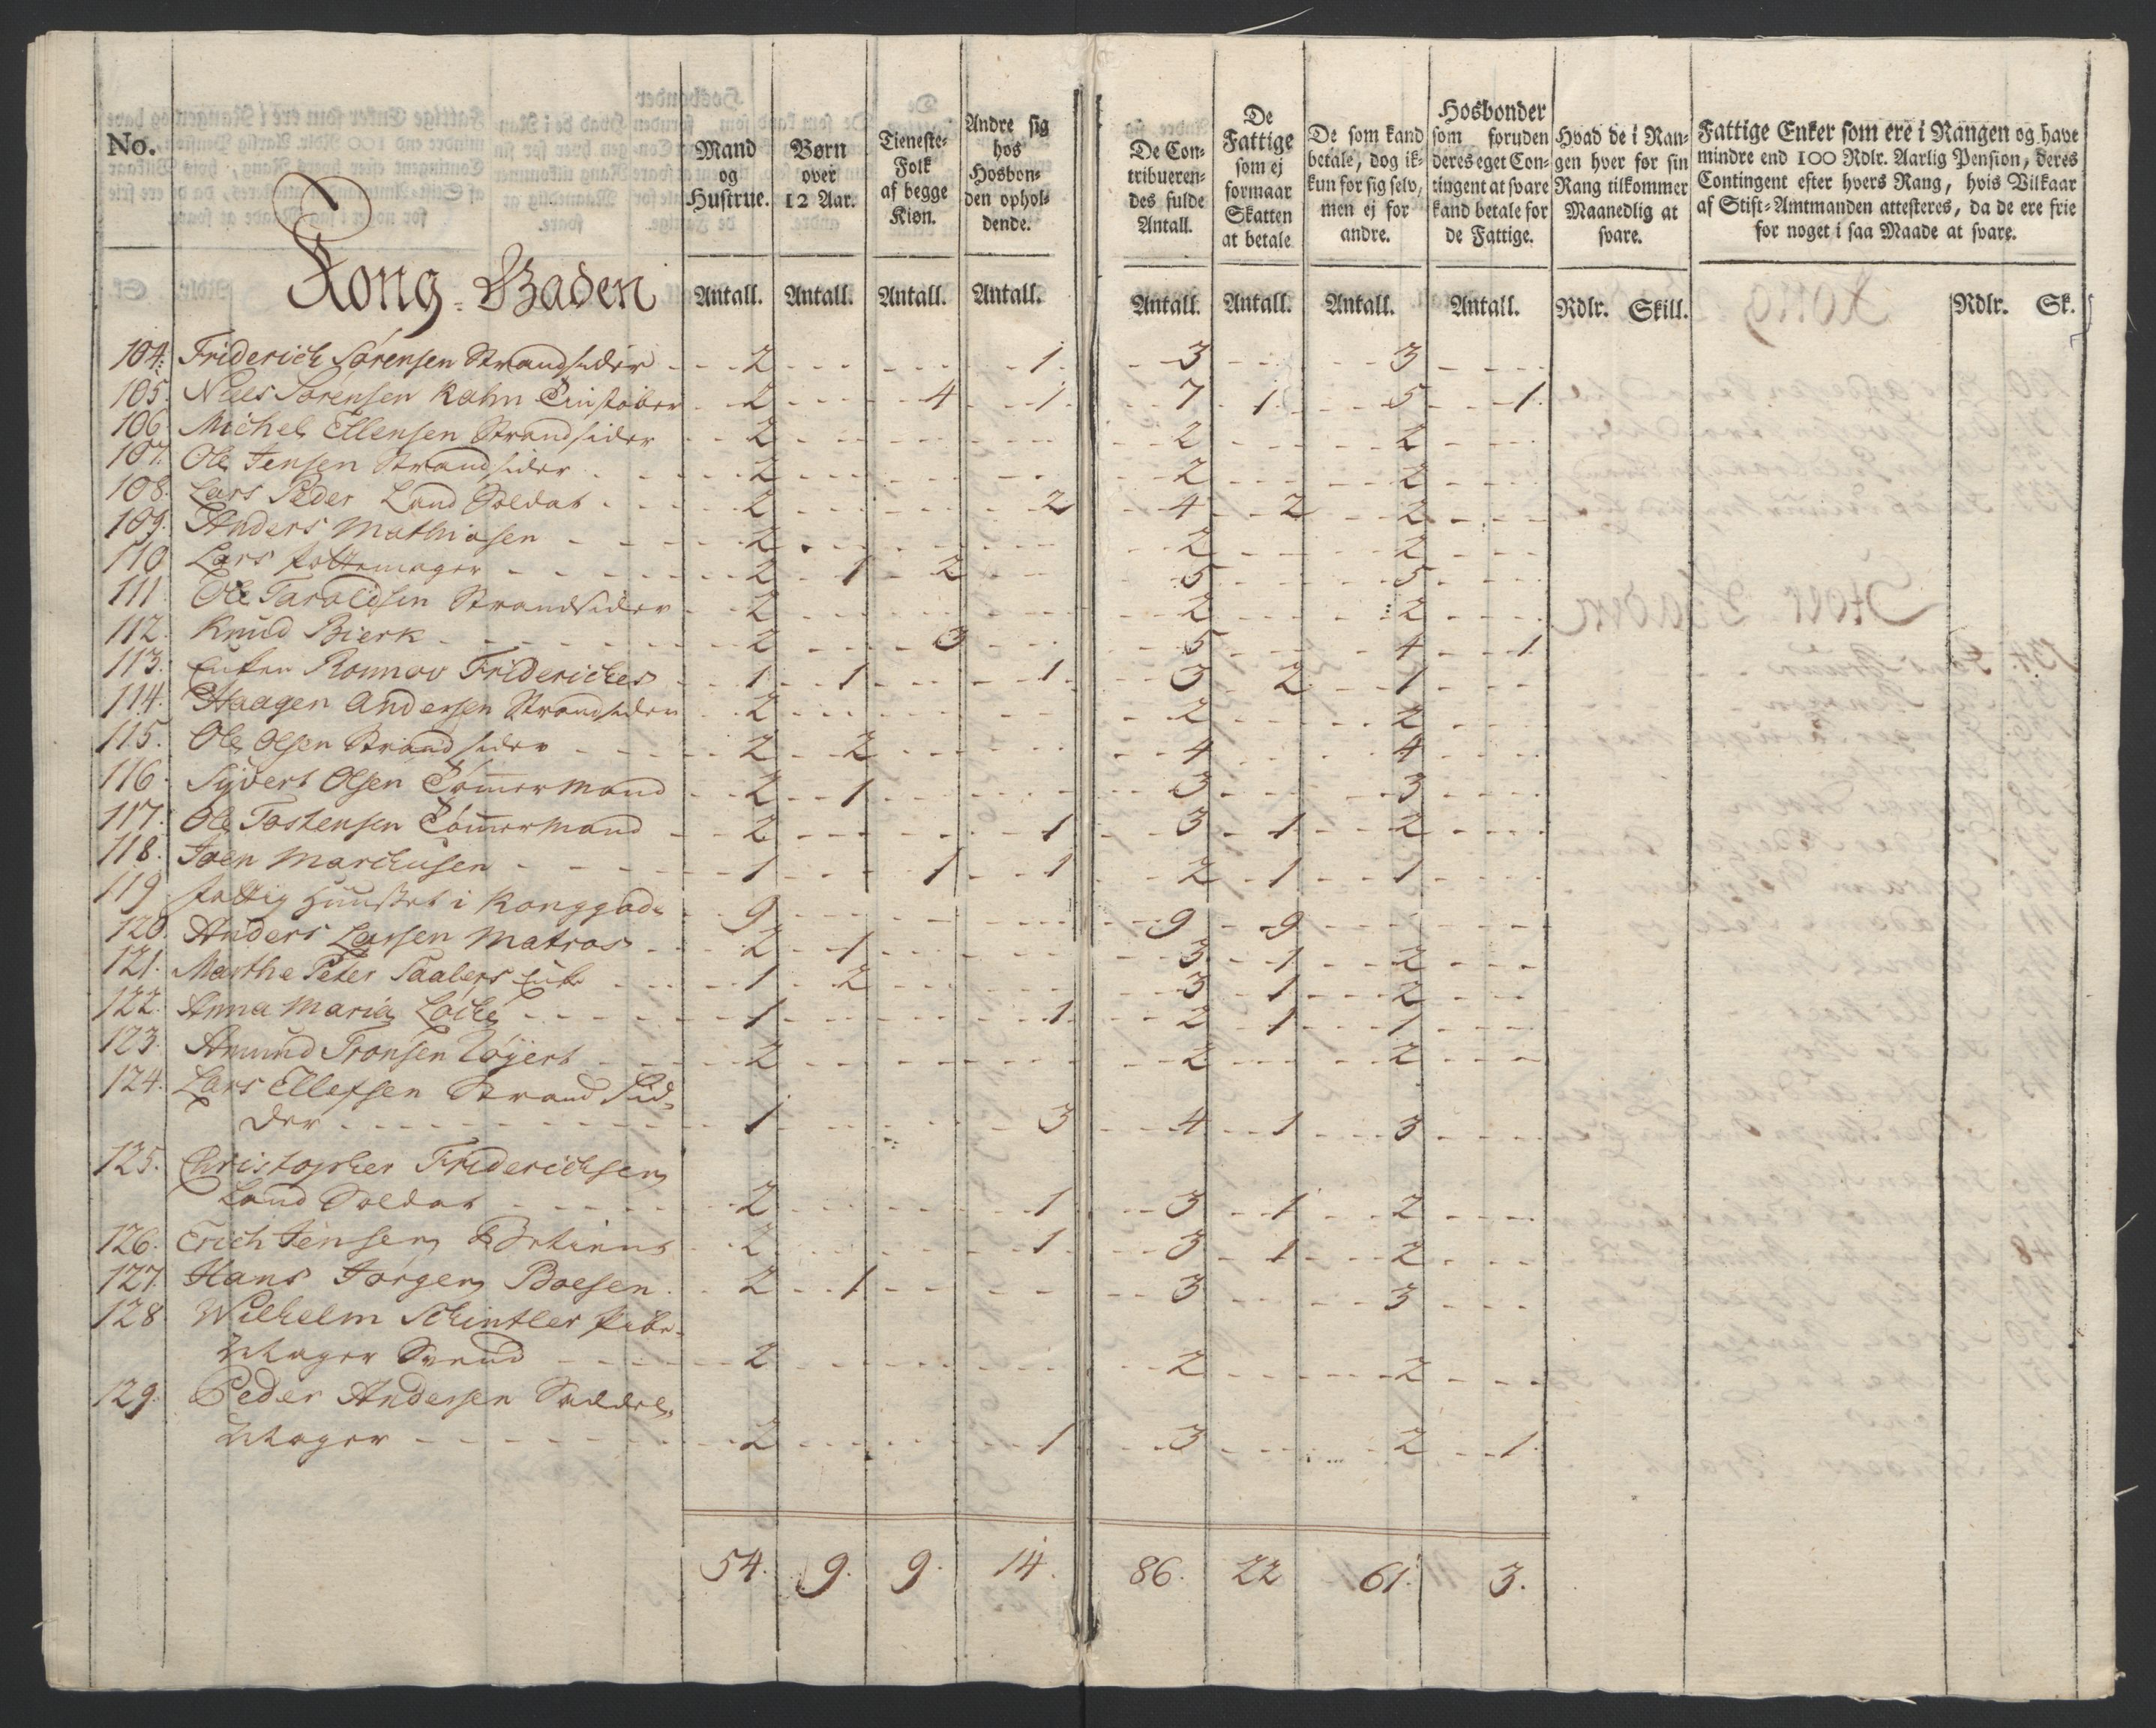 No.
Mand og Hustrue.
Børn over 12 Aar.
Tieneste-Folk af begge Kiøn.
Andre sig hos Hosbonden opholdende.
De Contribuerendes fulde Antall.
De Fattige som ej formaar Skatten at betale
De som kand betale, dog ikkun for sig selv, men ej for andre.
Hosbonder som foruden deres eget Contingent at svare kand betale for de Fattige.
Hvad de i Rangen hver for sin Rang tilkommer Maanedlig at svare.
Fattige Enker som ere i Rangen og have mindre end 100 Rdlr. Aarlig Pension, deres Contingent efter hvers Rang, hvis Vilkaar af Stift-Amtmanden attesteres, da de ere frie for noget i saa Maade at svare.
Kong-Gaden
Antall. Antall. Antall. Antall. Antall. Antall. Antall. Antall. Rdlr. Skill. Rdlr. Sk.
104. Friderich Sørensen Strandsider 2 1 3 3
105. Niels Sørensen Kahn 2 4 1 7 1 5 1
106. Michel Ellensen Strandsider 2 2 2
107. Ole Jensen Strandsider 2 2 2
108. Lars Peder Land Soldat 2 2 4 2 2
109. Anders Mathiasen 2 2 2
110 Lars Pottemager 2 1 2 5 5
111 Ole Taraldsen Strandsider 2 2 2
112. Knud Bierk 2 3 5 4 1
113. Enken Ronnov Friderichs 1 1 1 3 2 1
114. Haagen Andersen Strandsider 2 2 2
115. Ole Olsen Strandsider 2 2 4 4
116 Syvert Olsen Tømmermand 2 1 3 3
117. Ole Tostensen Tømmermand 2 1 3 1 2
118. Joen Marchusen 1 1 1 2 1 1
119 Fattig Huuset i Konggade 9 9 9
120. Anders Larsen Matros 2 1 3 1 2
121. Marthe Peter Taalers Enke 1 2 3 1 2
122. Anna Maria Løche 1 1 2 1 1
123. Amund Tronsen Røyert 2 2 2
124. Lars Ellefsen Strand Sid-
der 1 3 4 1 3
125. Christopher Friderichsen
Land Soldat 2 1 3 1 2
126. Erich Jensen 2 1 3 1 2
127. Hans Jørgen Boesen 2 1 3 3
128 Wilhelm Schintler
Mager Svend 2 2 2
129. Peder Andersen Saddel-
Mager 2 1 3 2 1
54. 9. 9. 14. 86. 22 61. 3.